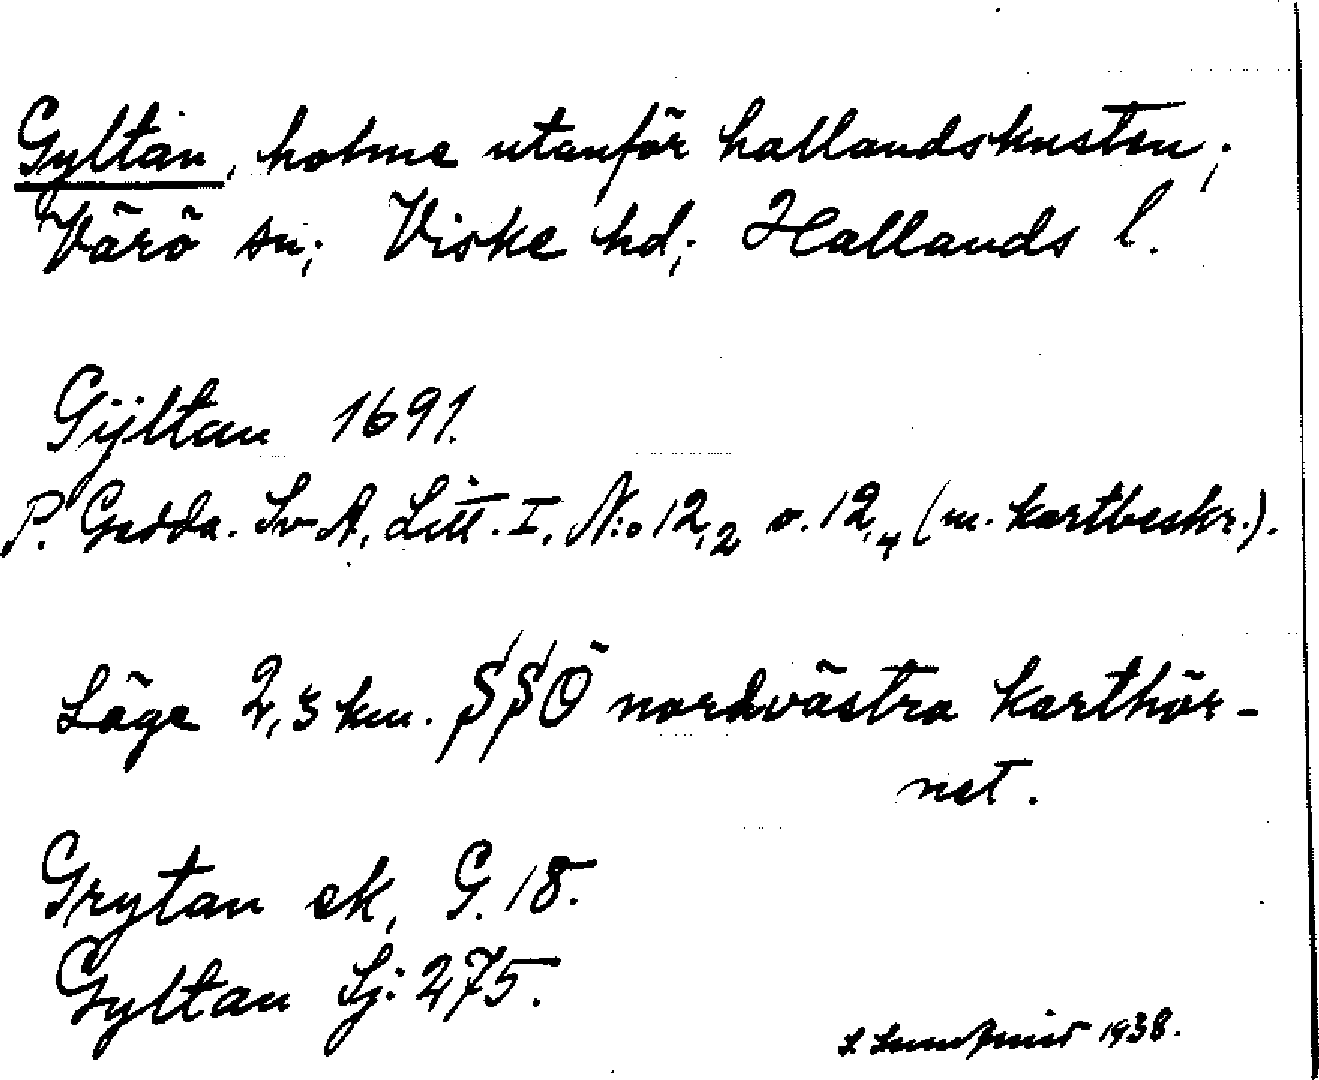 Gyltan, holme utanför hallandskusten;
Värö sn; Viske hd; Hallands l.
Gÿltan 1691.
P. Gedda. Sv A, Litt. I, N:o 12,2 o. 12,4 (m. kartbeskr.).
Läge 2,3 km. SSÖ nordvästra karthör-
net.
Grytan ek, G. 18.
Gyltan Sj: 275.
1938.